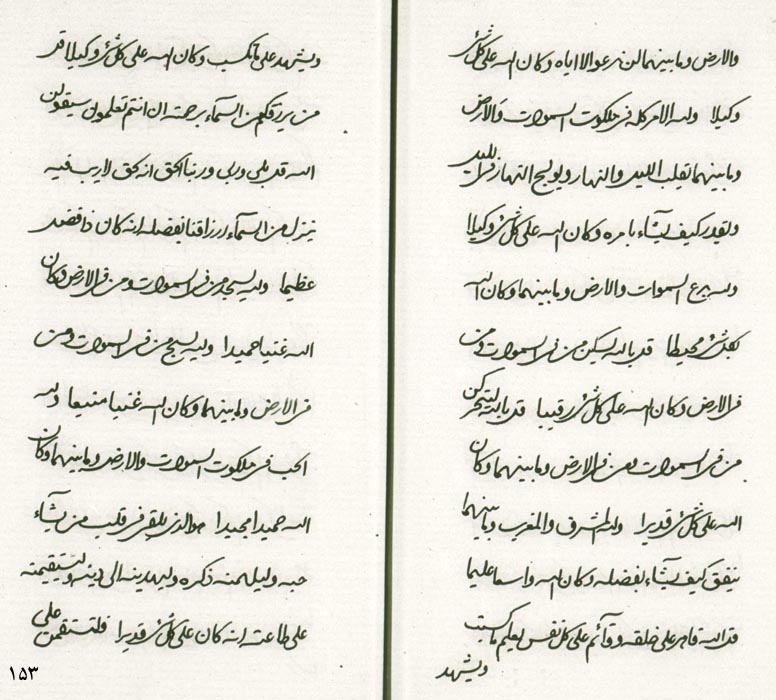 والارض وما بينهما لن ندعوا الا اياه وكان الله على كل شئ
وكيلا ولله الامر كله في ملكوت السموات والارض
وما بينهما يقلب الليل والنهار ويولج النهار في الليل
ويقدر كيف يشاء بامره وكان الله على كل شئ وكيلا
ولله بدع السموات والارض وما بينهما وكان الله
بكل شئ محيطا قل بالله يسكن من في السموات ومن
في الارض وكان الله على كل شئ رقيبا قل بالله ليتحركن
من في السموات ومن في الارض وما بينهما وكان
الله على كل شئ قديرا ولله المشرق والمغرب وما بينهما
ينفق كيف يشاء بفضله وكان الله واسعا عليما
قل الله قاهر على خلقه وقائم على كل نفس يعلم ما كسبت
ويشهد
ويشهد على ما تكسب وكان الله على كل شئ وكيلا قل
من يرزقكم من السماء برحمته ان انتم تعلمون سيقولن
الله قل بلى وربي وربنا الحق انه لحق لا ريب فيه
ينزل من السماء ارزاقنا بفضله انه كان ذا فضل
عظيما ولله يسجد من في السموات ومن في الارض وكان
الله غنيا حميدا ولله يسبح من في السموات ومن
في الارض وما بينهما وكان الله غنيا منيعا ولله
الحب في ملكوت السموات والارض وما بينهما وكان
الله حميدا مجيدا هو الذي يلقي في قلب من يشاء
حبه وليلهمنه ذكره وليهدينه الى دينه وليستقيمنه
على طاعته انه كان على كل شئ قديرا فلتستقمن على
١٥٣